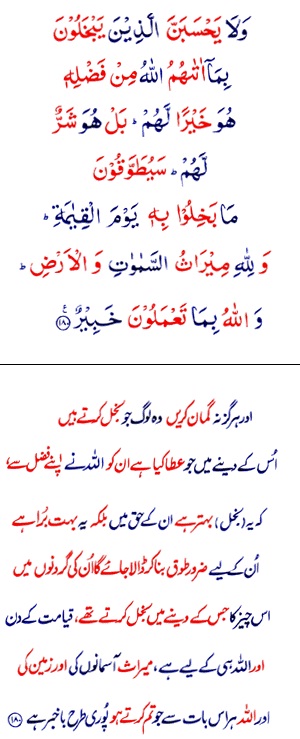 وَلَا يَحْسَبَنَّ الَّذِيْنَ يَبْخَلُوْنَ
بِمَاۤ اٰتٰىهُمُ اللّٰهُ مِنْ فَضْلِهٖ
هُوَ خَيْرًا لَّهُمْ ؕ بَلْ هُوَ شَرٌّ
لَّهُمْ ؕ سَيُطَوَّقُوْنَ
مَا بَخِلُوْا بِهٖ يَوْمَ الْقِيٰمَةِ ؕ
وَ لِلّٰهِ مِيْرَاثُ السَّمٰوٰتِ وَ الْاَرْضِ ؕ
وَ اللّٰهُ بِمَا تَعْمَلُوْنَ خَبِيْرٌ ﴿۱۸۰﴾ ع
اور ہرگز نہ گمان کریں وہ لوگ جو بخل کرتے ہیں
اُس کے دینے میں جو عطا کیا ہے ان کو اللہ نے اپنے فضل سے،
کہ یہ (بخل) بہتر ہے ان کے حق میں بلکہ یہ بہت بُرا ہے
اُن کے لیے ضرور طوق بنا کر ڈالا جائے گا اُن کی گردنوں میں
اس چیز کا جس کے دینے میں بخل کرتے تھے، قیامت کے دن
اور اللہ ہی کے لیے ہے، میراث آسمانوں کی اور زمین کی
اور اللہ ہر اس بات سے جو تم کرتے ہو پُوری طرح باخبر ہے ﴿۱۸۰﴾